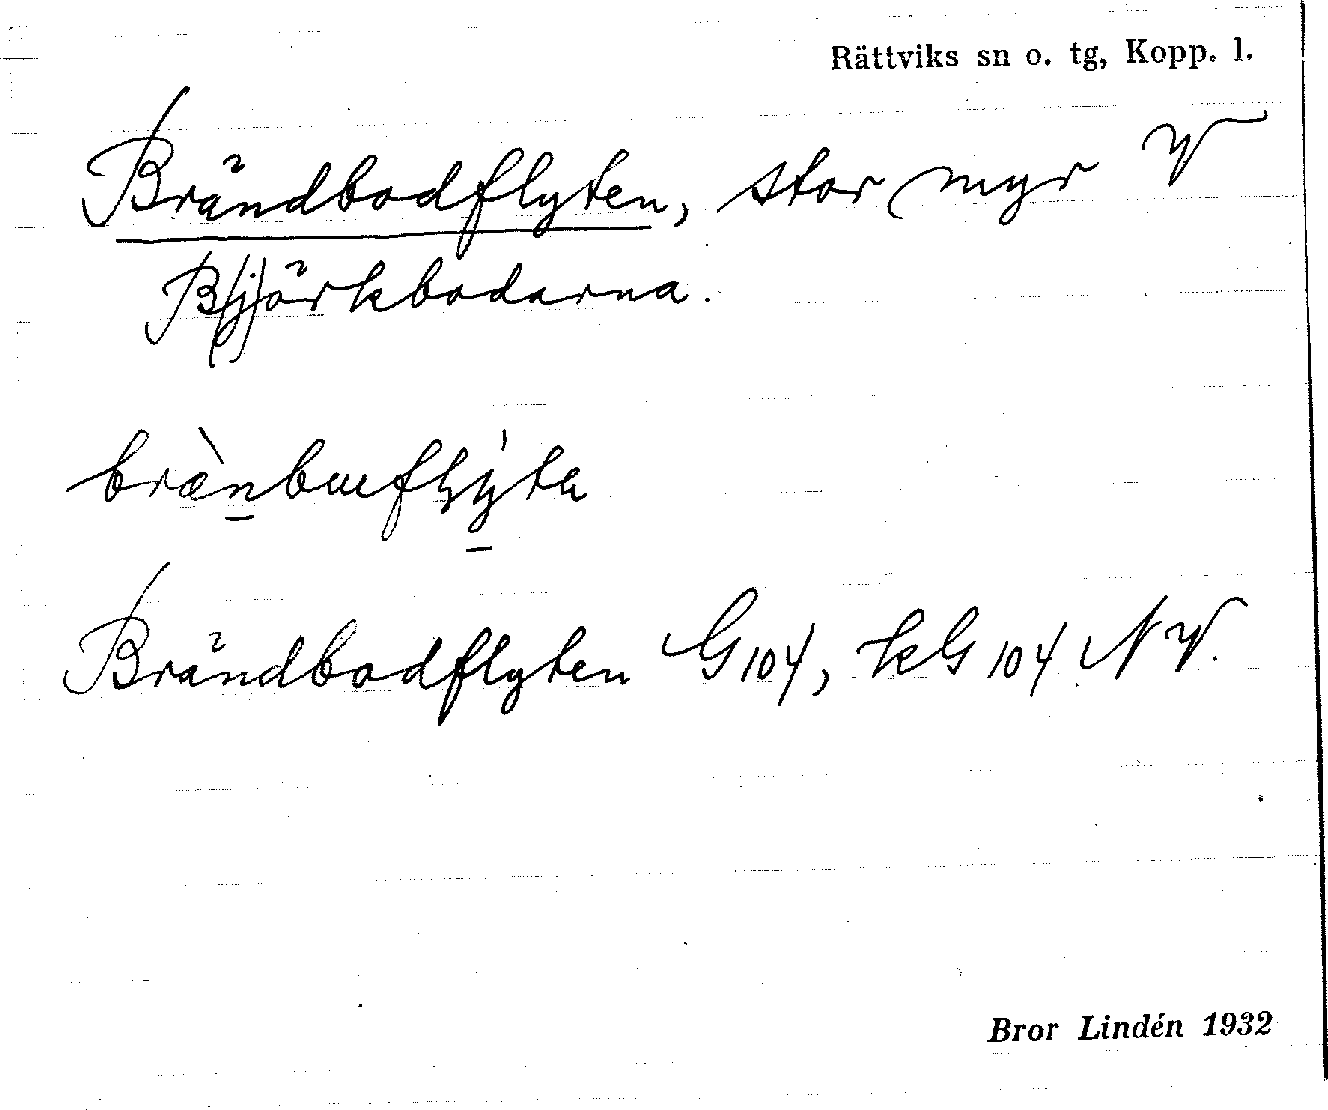 Rättviks sn o. tg, Kopp. l.
Brändbodflyten, stor myr V
B(j)örkbodarna.
Brändbodflyten G104, kG 104 NV.
Bror Lindén 1932